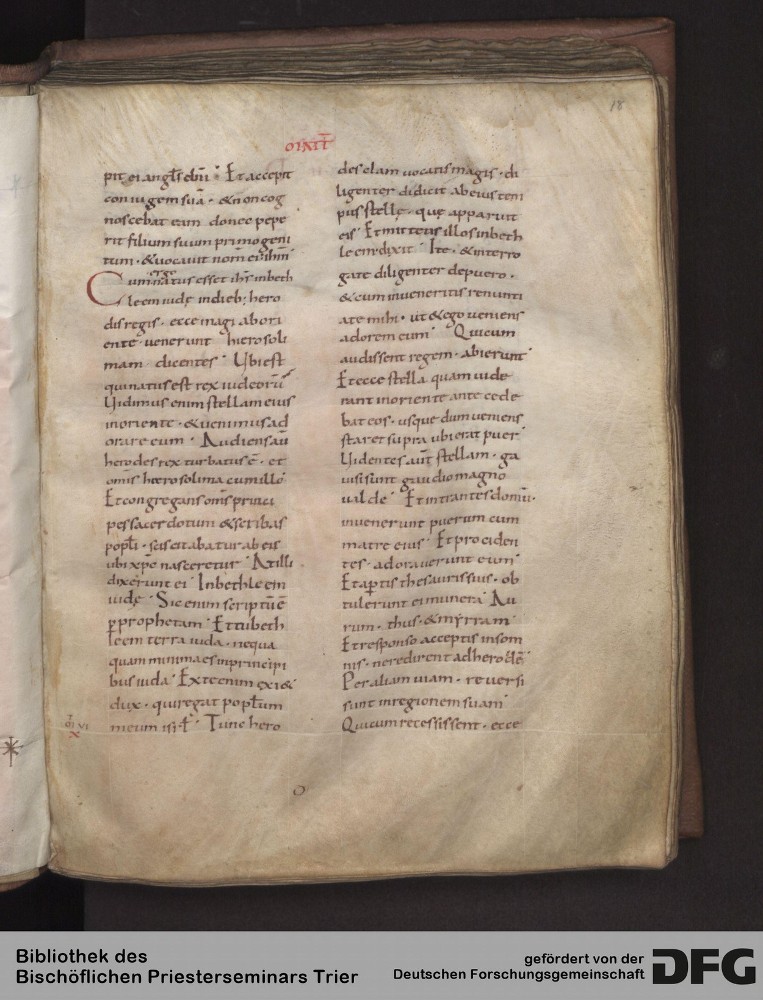 18
pit ei angłs dnī · Et accepit
coniugem suā · & non cog
noscebat eam donec pepe
rit filium suum primogeni
tum · & uocauit nom̄ ei ihm̄
Cum ergo natus esset ihs̄ in beth
leem iudę in dieb; hero
dis regis · ecce magi ab ori
ente uenerunt hierosoli
mam dicentes Ubi est
qui natus est rex iudeorū
Uidimus enim stellam eius
in oriente · & uenimus ad
orare eum · Audiens aū
herodes rex turbatus ē · et
omīs hierosolima cum illo
Et congregans omīs princi
pes sacerdotum & scribas
popłi · sciscitabatur ab eis
ubi xp̄c nasceretur At illi
dixerunt ei In bethleem
iudę · Sic enim scriptū ē
ꝑ prophetam · Et tu beth
leem terra iuda · nequa
quam minima es in princi
bus iuda · Ex te enim exi&
dux · qui regat popłum
meum isrł · Tunc hero
des clam uocatis magis · di
ligenter didicit ab eis tem
pus stellę · quę apparuit
eis · Et mittens illos in beth
leem dixit · Ite · & interro
gate diligenter de puero ·
& cum inueneritis renunti
ate mihi · ut & ego ueniens
adorem eum Qui cum
audissent regem · abierunt
Et ecce stella quam uide
rant in oriente ante cede
bat eos · usque dum ueniens
staret supra ubi erat puer
Uidentes aūt stellam · ga
uisi sunt gaudio magno
ualde · Et intrantes domū ·
inuenerunt puerum cum
matre eius · Et prociden
tes · adorauerunt eum
Et aꝑtis thesauris suis · ob
tulerunt ei munera Au
rum · thus · & myrram
Et responso acceptis in som
nis · ne redirent ad herodē
Per aliam uiam · reuersi
sunt in regionem suam
Qui cum recessissent · ecce
Bibliothek des
Bischöflichen Priesterseminars Trier
gefördert von der
Deutschen Forschungsgemeinschaft
DFG